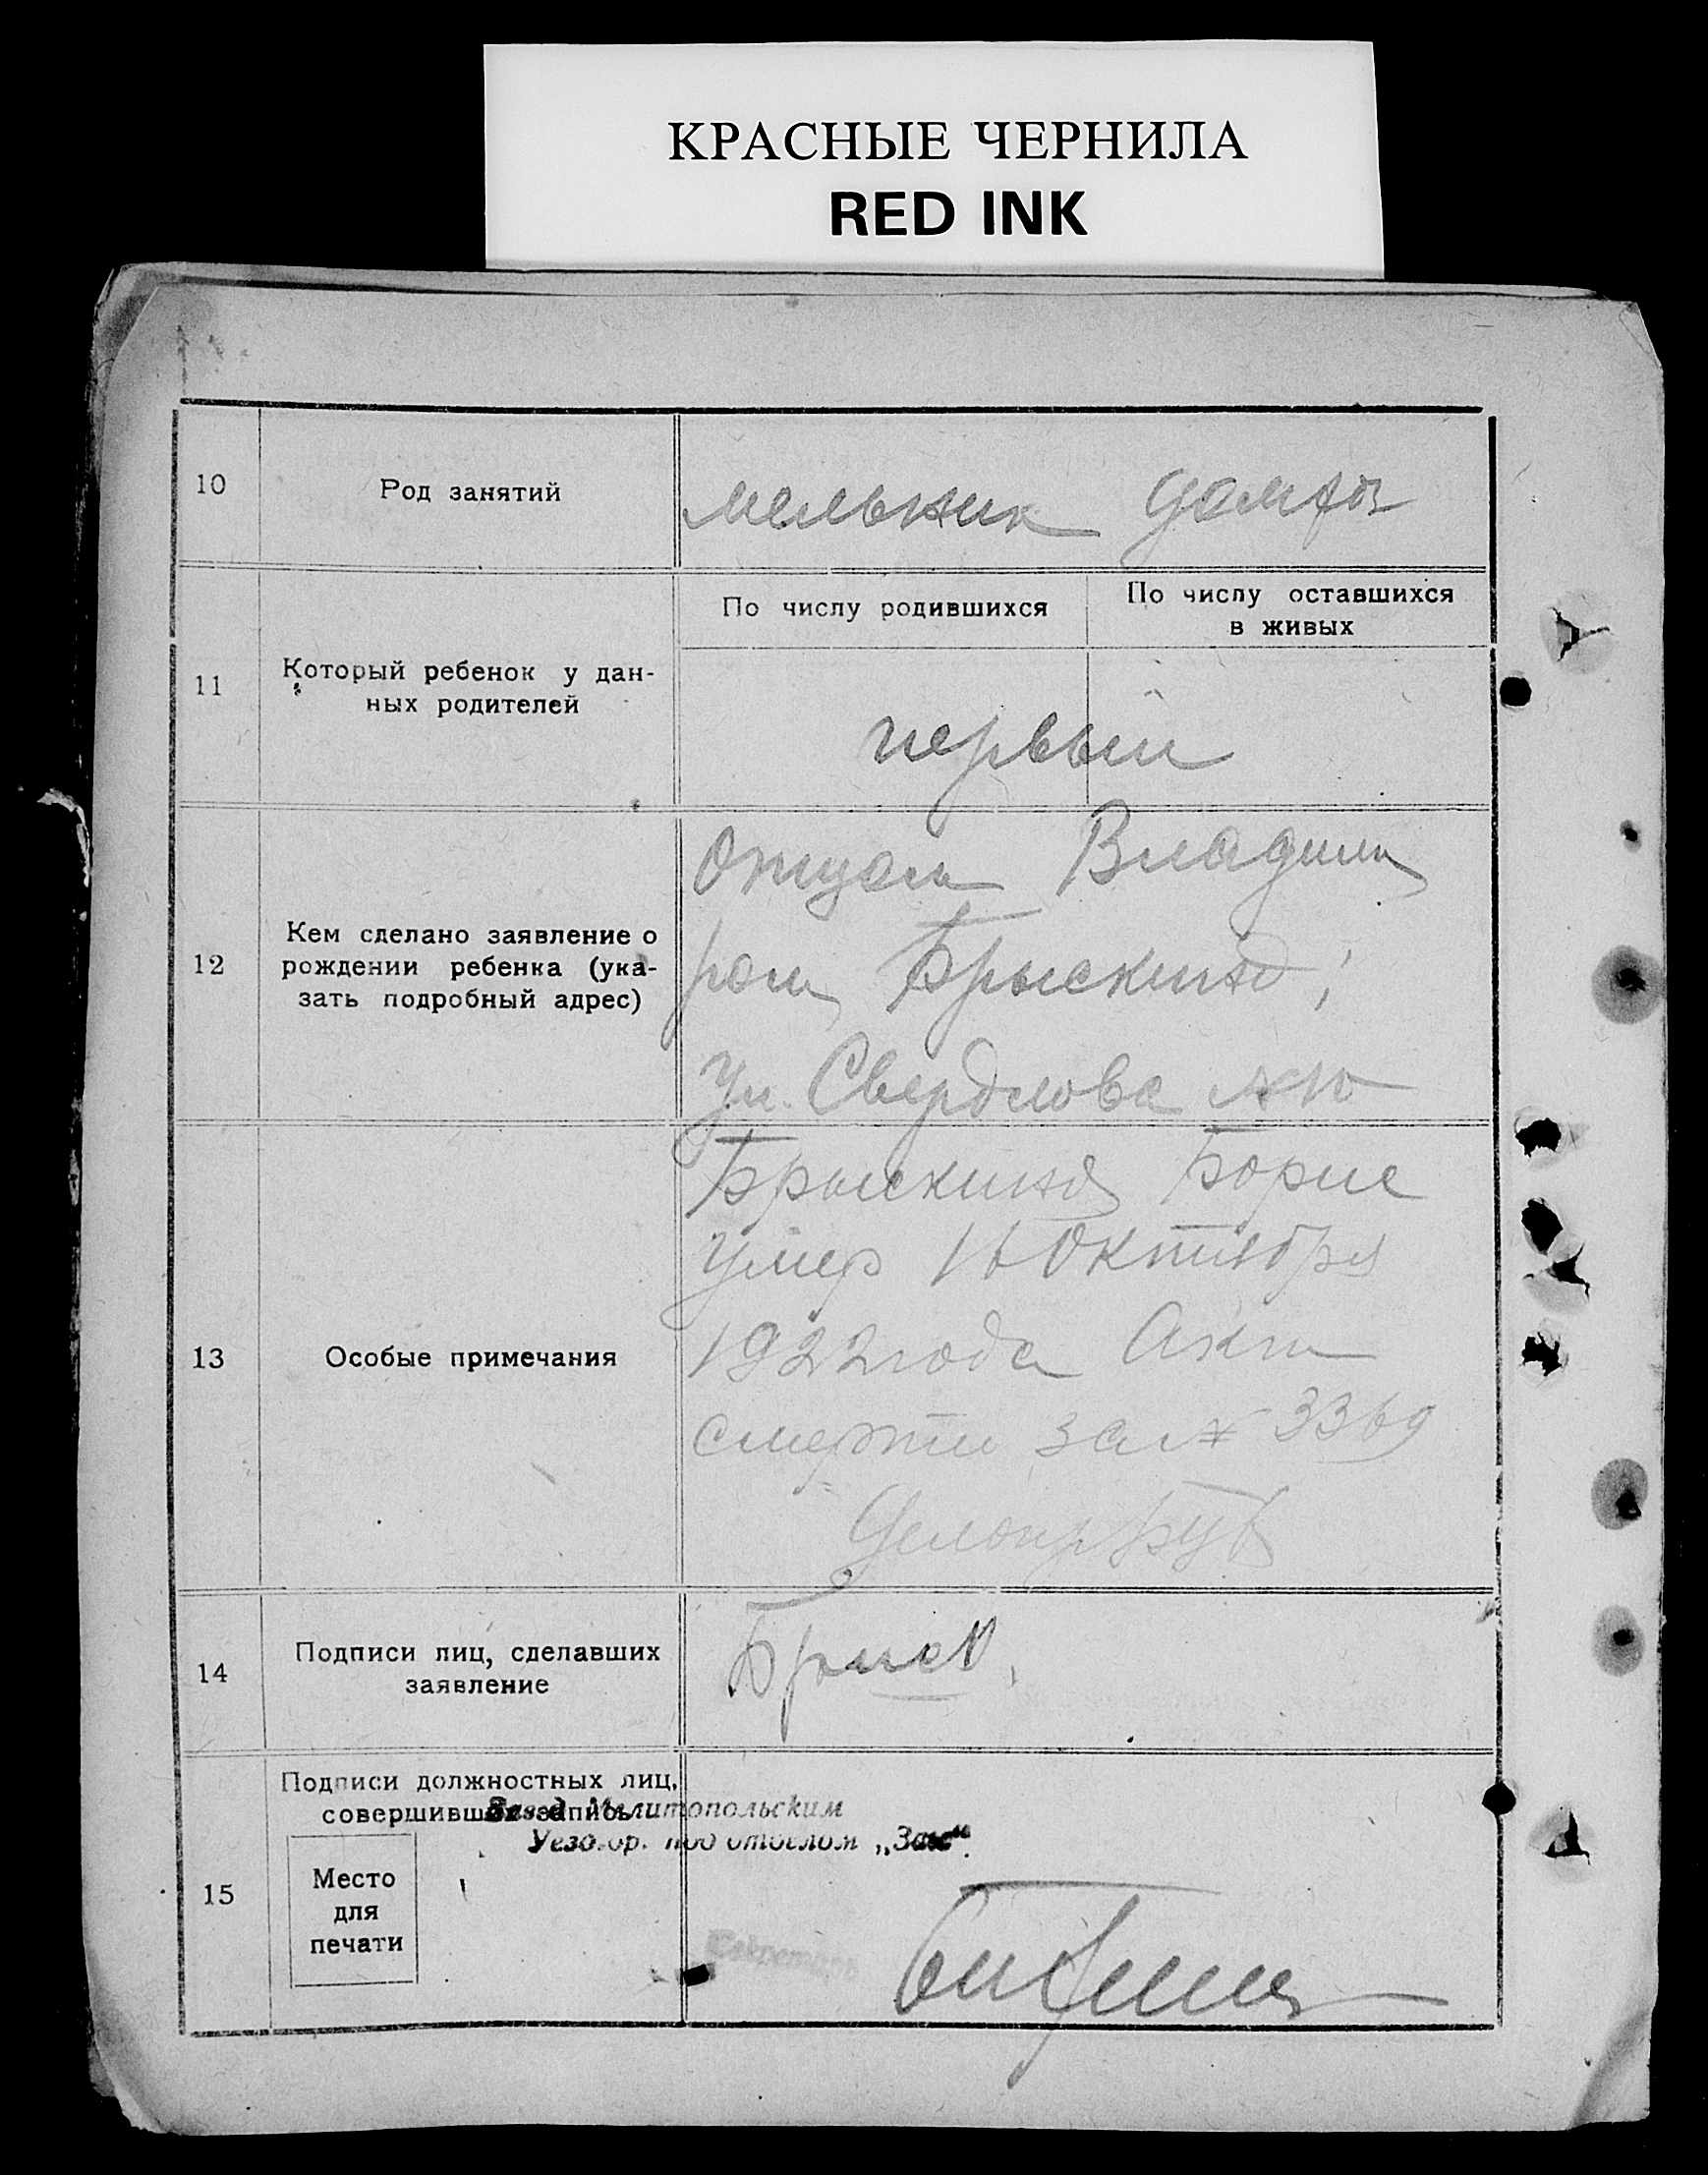 КРАСНЫЕ ЧЕРНИЛА
RED INK
10
Род занятий
мельник
11
Который ребенок у дан-
ных родителей
По числу родившихся
По числу оставшихся
в живых
первый
12
Кем сделано заявление о
рождении ребенка (ука-
зать подробный адрес)
Отцом Владими
ром Брыскинд,
Ул. Свердлова №10
13
Особые примечания
Брыскинд Борис
умер 16 Октября
1922 года Акт
смерти за № 3369
Делопр
14
Подписи лиц, сделавших
заявление
15
Подписи должностных лиц,
совершивших запись
Завед. Мелитопольским
Уездгор. под отделом „Загс“.
Место
для
печати
Секретарь